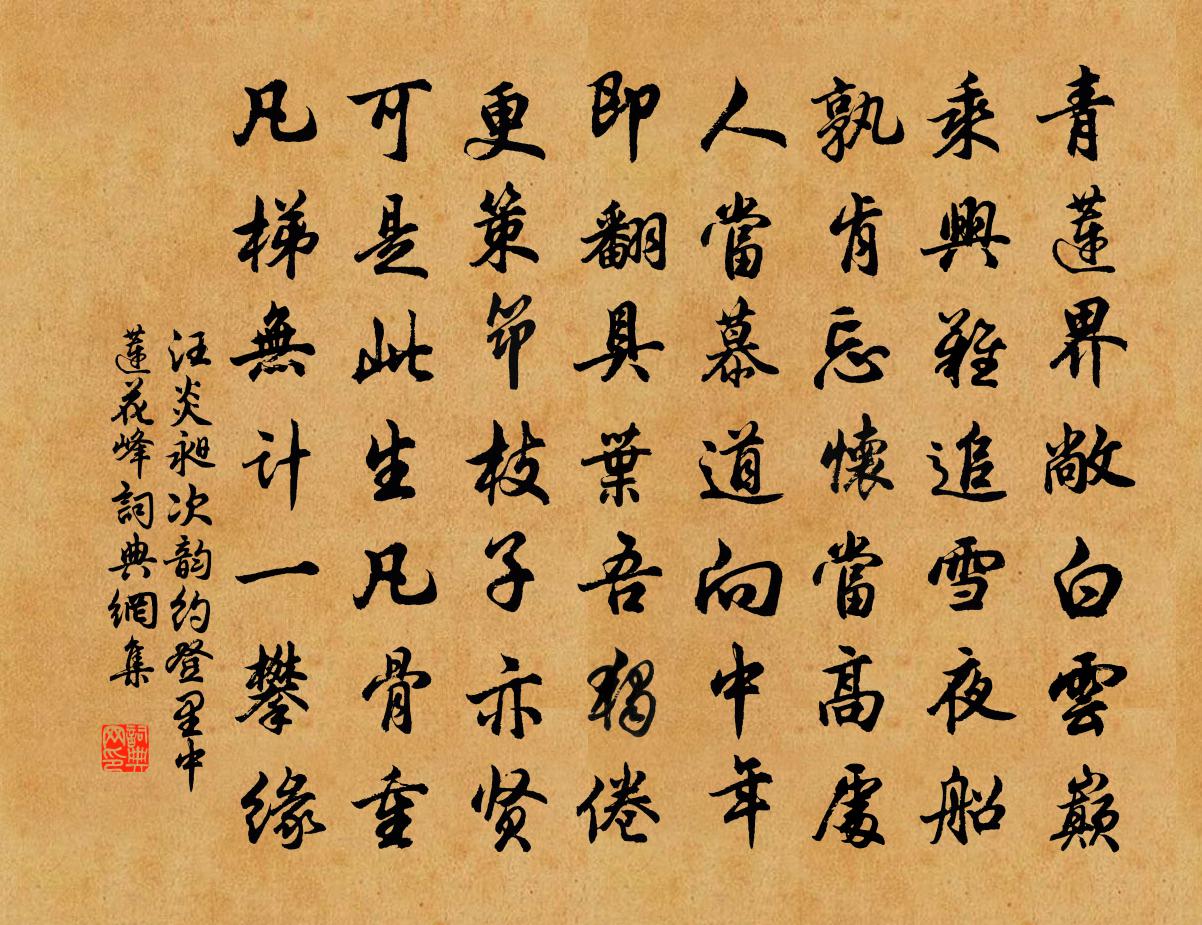 青蓮界敞白雲巔
乘興難追雪夜船
孰肯忘懷當高處
人當慕道向中年
即翻具葉吾獨倦
更策笻枝子亦贤
可是此生凡骨重
凡梯無计一攀缘
汪炎昶次韵约登里中
蓮花峰詞典網集
詞典
网印